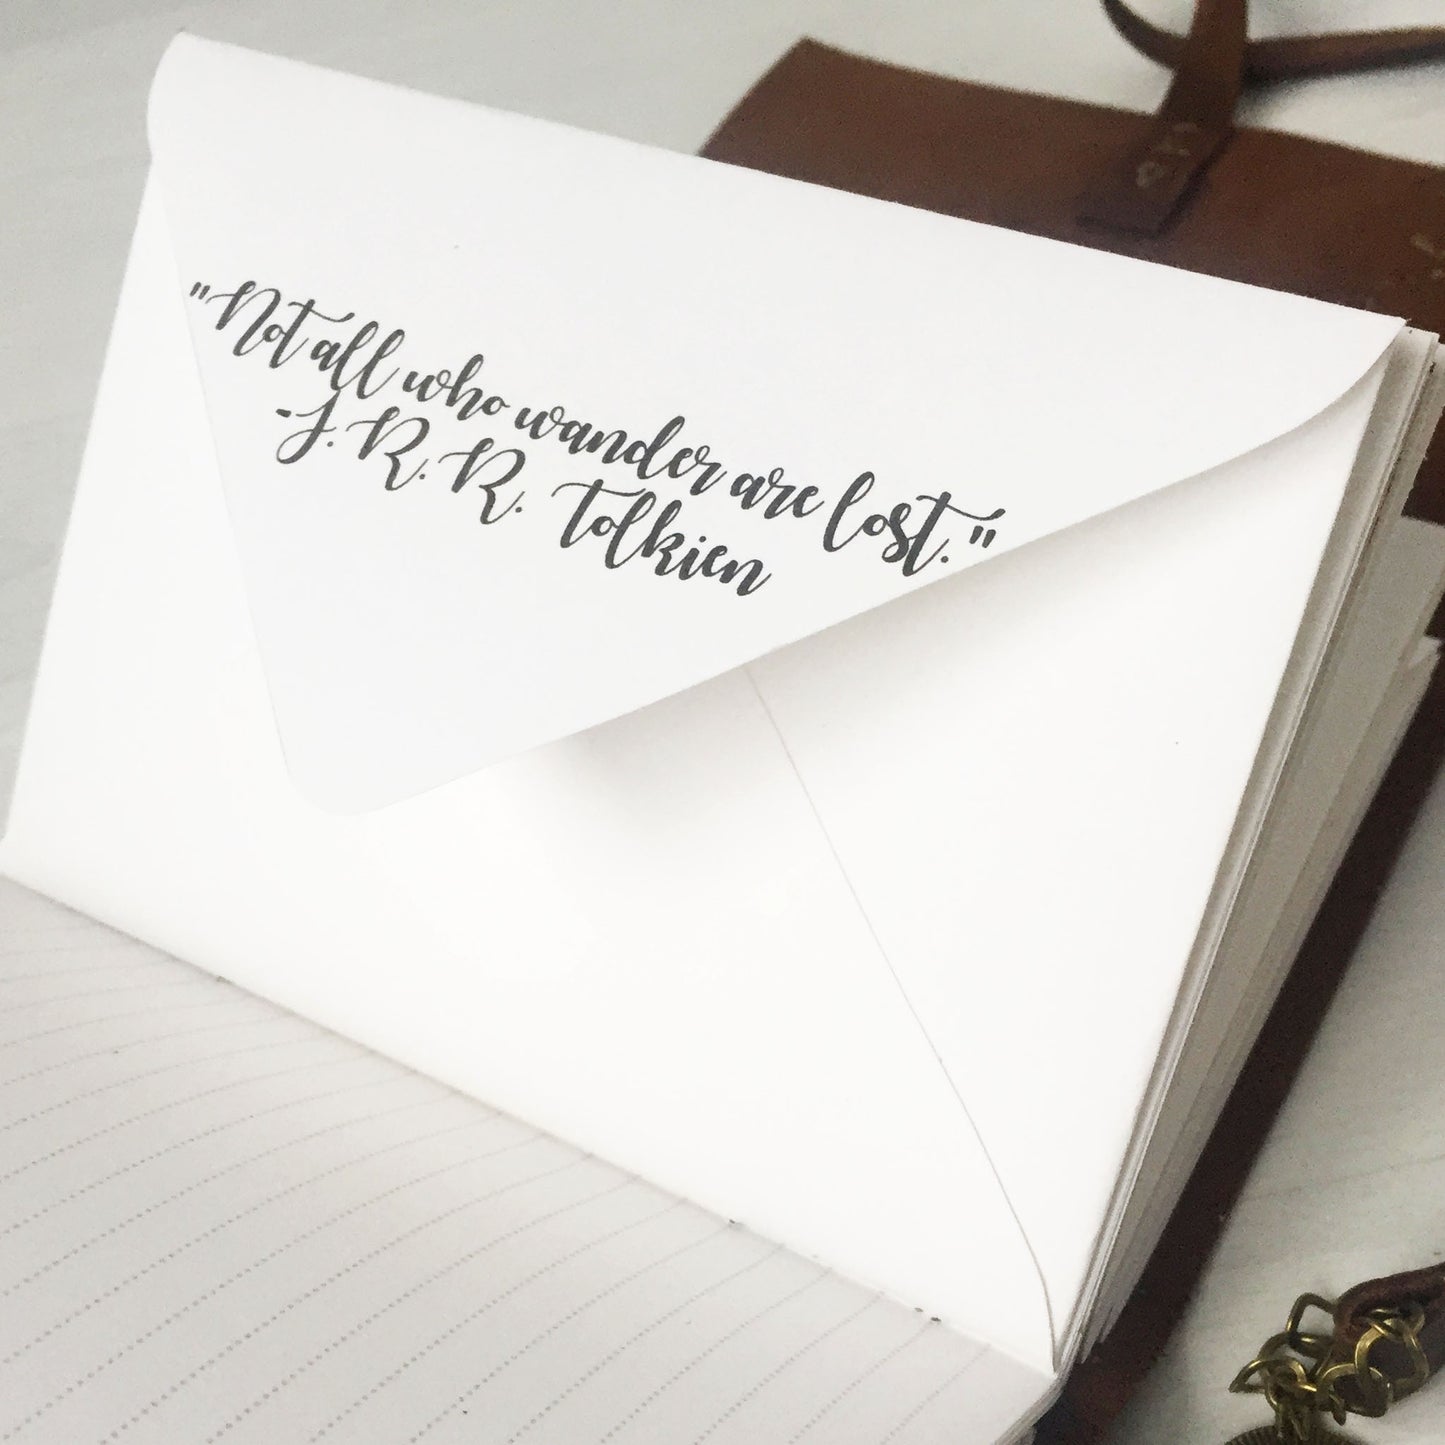 "Not all who wander are lost."
-J. R. R. Tolkien